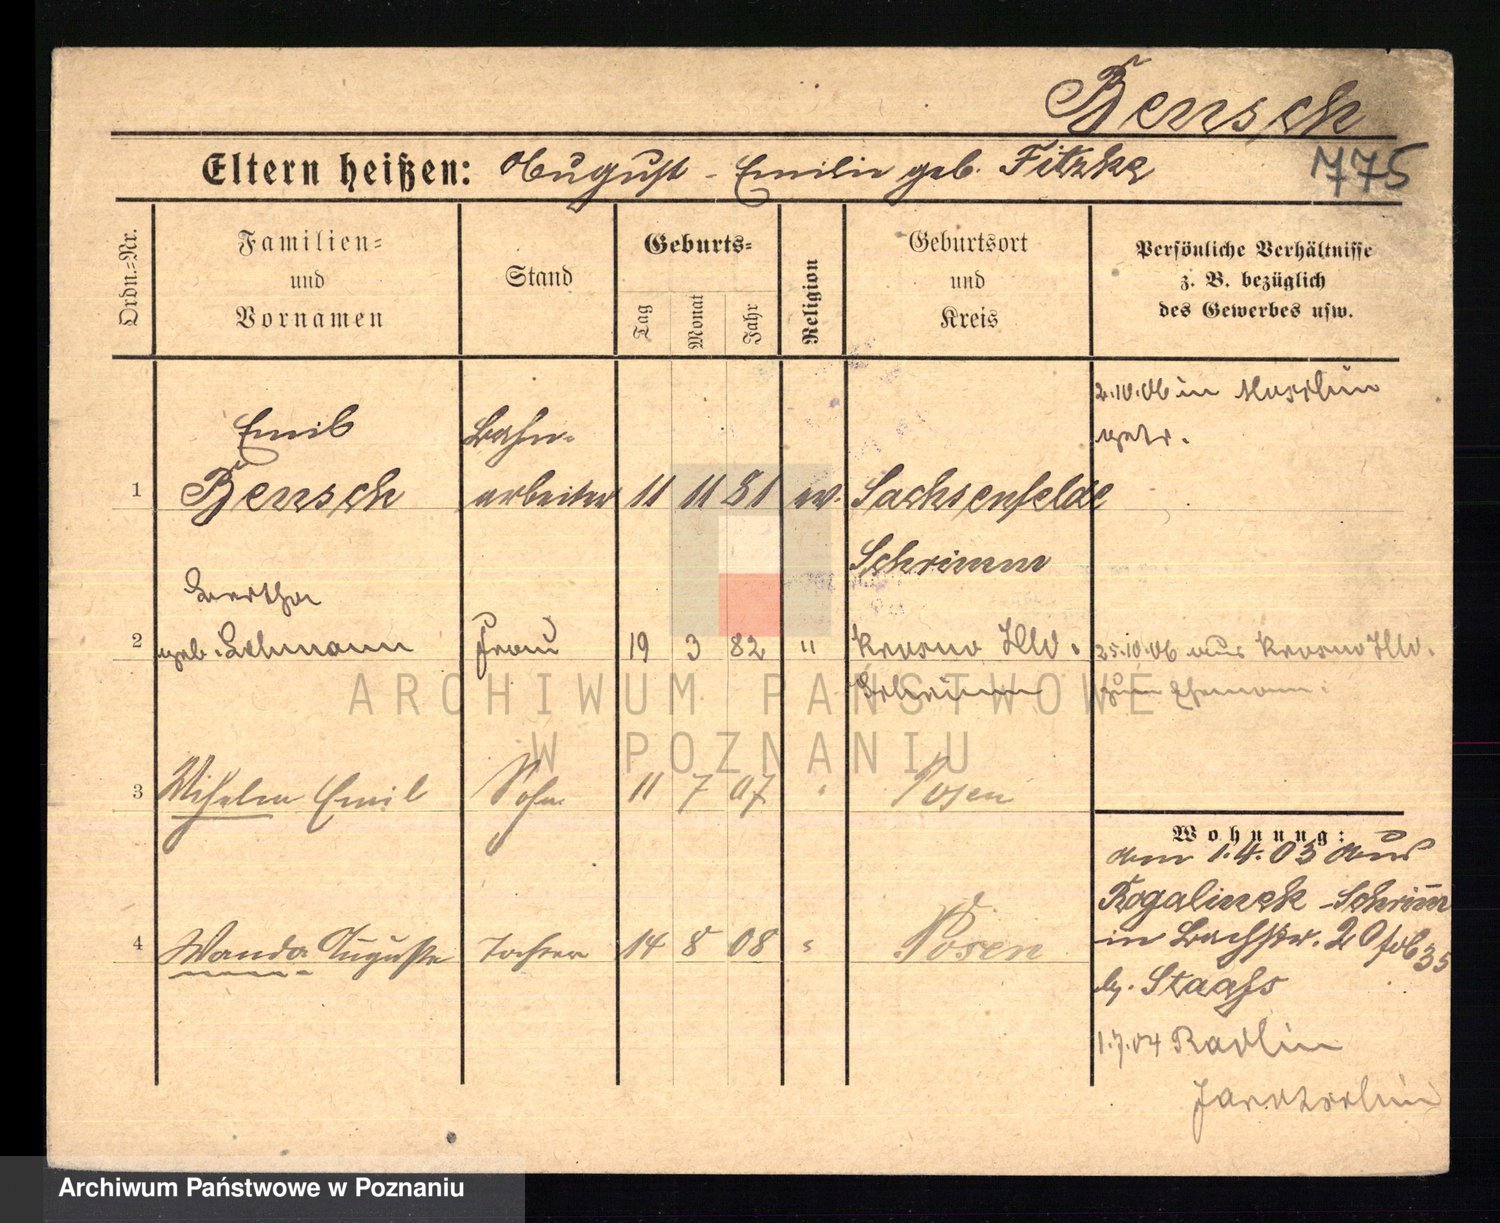 Bensch
Eltern heißen: August - Emilie geb. Fitzke
775
Ordn.-Nr.
Familien-
und
Vornamen
Stand
Geburts-
Tag
Monat
Jahr
Religion
Geburtsort
und
Kreis
Persönliche Verhältnisse
z. B. bezüglich
des Gewerbes usw.
2.10.06 in
getr.
Emil
Bensch
Bahn-
arbeiter
1
11 11 81 ev. Sachsenfelde
Schrimm
Bertha
2 geb. Lehmann Frau 19 3 82 " Krosno Hld.
Schrimm
25.10.06 aus Krosno Hld.
zum Ehemann.
3 Wilhelm Emil Sohn 11 7 07 " Posen
4 Wanda Auguste Tochter 14 8 08 " Posen
Wohnung:
am 1.4.03 aus
Rogalinek - Schrimm
in Bachstr. 20
b. Staafs
1.7.04 Radlin
Jarotschin
ARCHIWUM PAŃSTWOWE
W POZNANIU
Archiwum Państwowe w Poznaniu